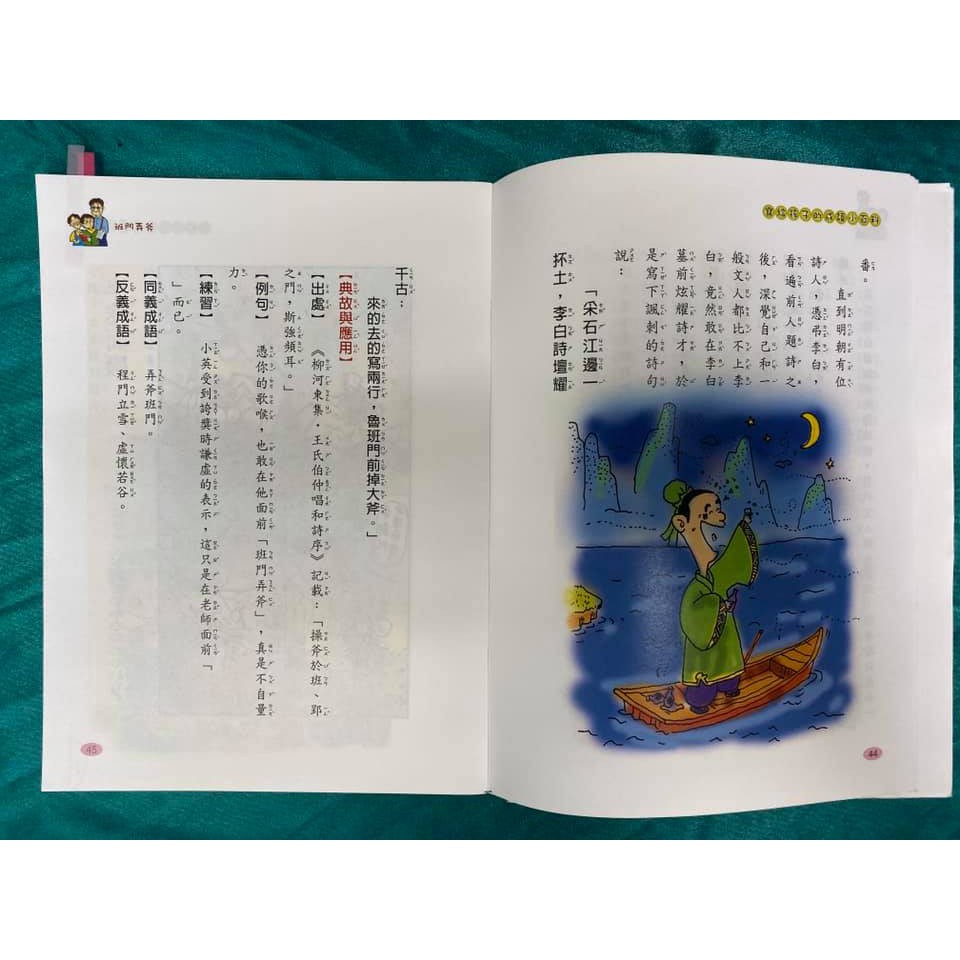 寫給孩子的成語小百科
番。
直到明朝有位
詩人,憑弔李白,
看遍前人題詩之
後,深覺自己和一
般文人都比不上李
白,竟然敢在李白
墓前炫耀詩才,於
是寫下諷刺的詩句
說:
「采石江邊一
抔土,李白詩壇耀
44
班門弄斧
千古;
來的去的寫兩行,魯班門前掉大斧。」
【典故與應用】
【出處】 《柳河東集,王氏伯仲唱和詩序》記載:「操斧於班、郢
之門,斯強頻耳。」
【例句】 憑你的歌喉,也敢在他面前「班門弄斧」,真是不自量
力。
【練習】 小英受到誇獎時謙虛的表示,這只是在老師面前「
」而已。
【同義成語】 弄斧班門。
【反義成語】 程門立雪、虛懷若谷。
45